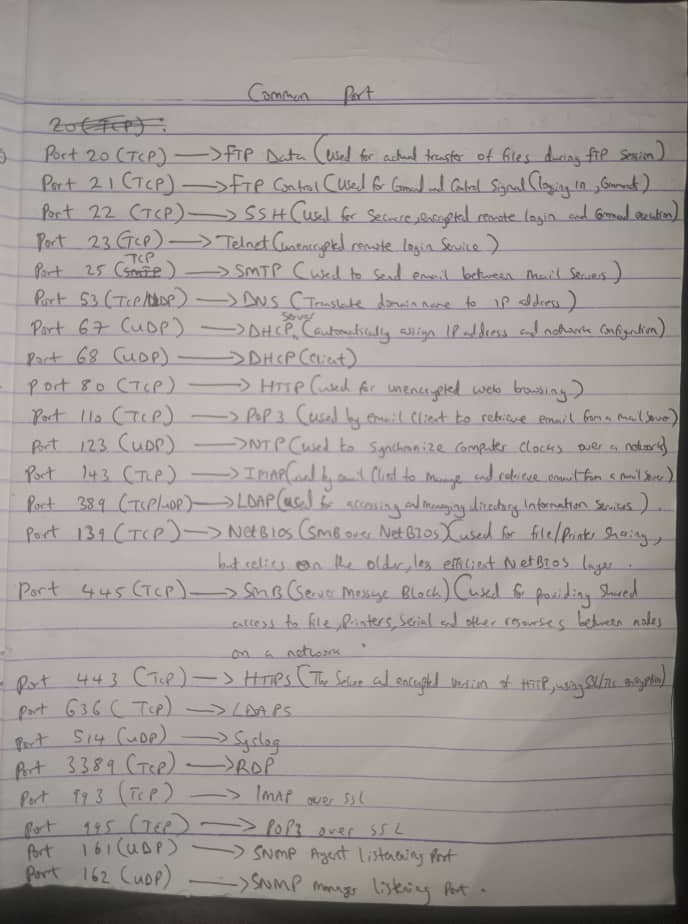 Common Port
20 (TCP) :
Port 20 (TCP) —> FTP Data (used for actual transfer of files during FTP session)
Port 21 (TCP) —> FTP Control (used for Command and Control Signal (loging in, Command)
Port 22 (TCP) —> SSH (used for Secure, encrypted remote login and Command execution)
Port 23 (TCP) —> Telnet (unencrypted remote login Service)
TCP
Port 25 (SMTP) —> SMTP (used to send email between mail servers)
Port 53 (TCP/UDP) —> DNS (Translate domain name to IP address)
Server
Port 67 (UDP) —> DHCP (automatically assign IP address and network Configuration)
Port 68 (UDP) —> DHCP (Client)
Port 80 (TCP) —> HTTP (used for unencrypted web browsing.)
Port 110 (TCP) —> POP3 (used by email Client to retrieve email from a mail server)
Port 123 (UDP) —> NTP (used to synchronize computer clocks over a network)
Port 143 (TCP) —> IMAP (used by email Client to manage and retrieve email from a mail server)
Port 389 (TCP/UDP) —> LDAP (used for accessing and managing directory Information Services).
Port 139 (TCP) —> NetBIOS (SMB over NetBIOS) (used for file/Printer Sharing,
but relies on the older, less efficient NetBIOS layer.
Port 445 (TCP) —> SMB (Server Message Block) (used for providing shared
access to file, Printers, Serial and other resourses between nodes
on a network.
Port 443 (TCP) —> HTTPS (The Secure and encrypted version of HTTP, using SSL/TLS encryption)
Port 636 (TCP) —> LDAPS
Port 514 (UDP) —> Syslog
Port 3389 (TCP) —> RDP
Port 993 (TCP) —> IMAP over SSL
Port 995 (TCP) —> POP3 over SSL
Port 161 (UDP) —> SNMP Agent listening Port
Port 162 (UDP) —> SNMP manager listening Port.